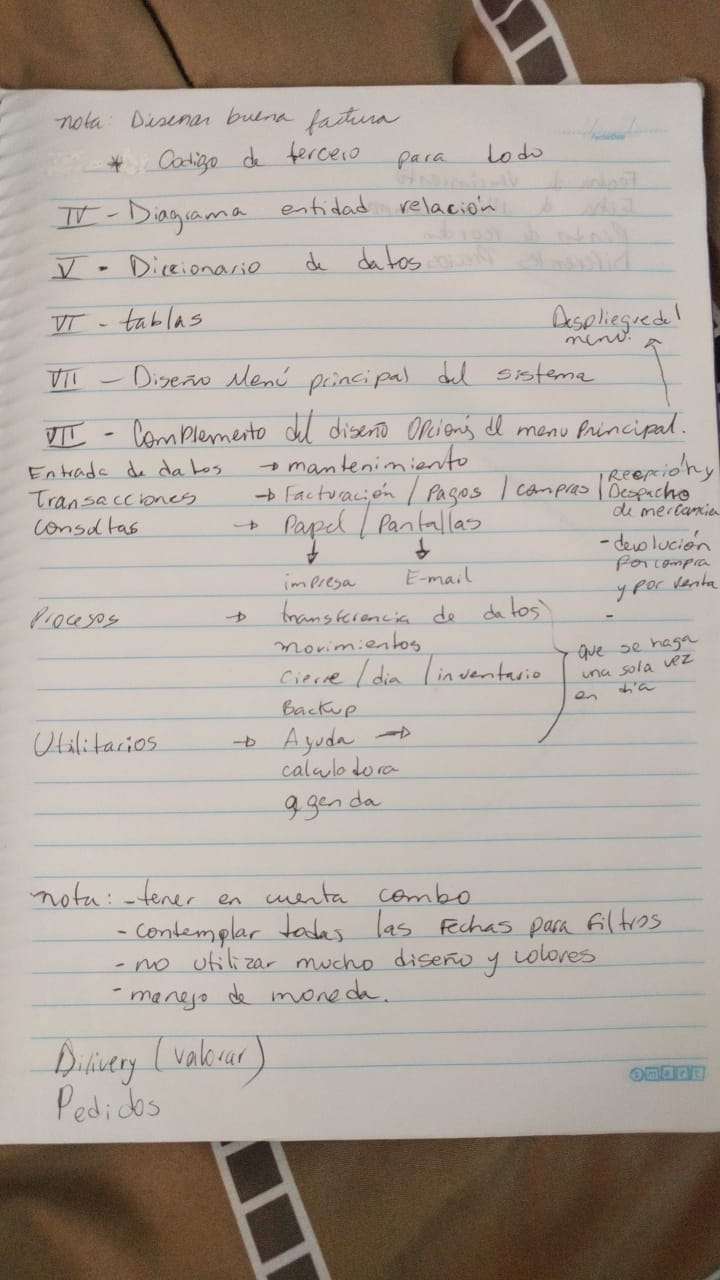 nota: Diseñar buena factura
* Codigo de tercero para todo
IV - Diagrama entidad relación
V - Diccionario de datos
VI - tablas
Despliegue del
menu.
VII - Diseño Menú principal del sistema
VII - Complemento del diseño Opciones del menu Principal.
Entrada de datos → mantenimiento
Transacciones → Facturación / Pagos / compras / Recepción y
Despacho
de mercancia
Consultas → Papel / Pantallas
- devolución
por compra
y por venta
-
impresa E-mail
Procesos → transferencia de datos
movimientos
cierre / dia / inventario
Backup
que se haga
una sola vez
en dia
Utilitarios → Ayuda →
calculadora
agenda
nota: - tener en cuenta combo
- contemplar todas las Fechas para Filtros
- no utilizar mucho diseño y colores
- manejo de moneda.
Dilivery (valorar)
Pedidos
smart